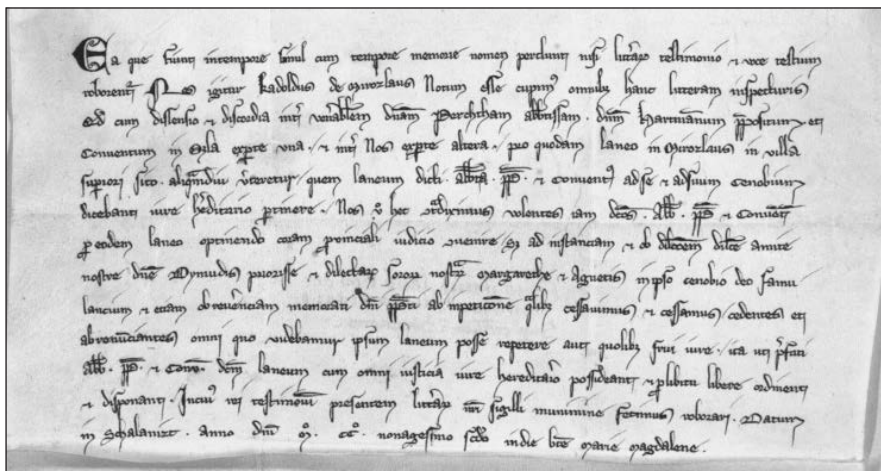 Ea que fiunt in tempore simul cum tempore memorie nomen perdunt nisi litt̄ar̄ testimonio ⁊ voce testium
roborent᷑ Nos igitur Kadoldus de Mirozlaus Notum esse cupim᷒ omnibꝫ hanc litteram inspecturis
Qd̄ cum dissensio ⁊ discordia int̄ ven̄abilem dn̄am Perchtham abb̄issam . dn̄m Hartmannum p̄positum et
Conventum in ex parte una . ⁊ int̄ Nos ex parte altera . pro quodam laneo in Mirozlaus in villa
sup̄iori sito . aliqᵃmdiu v̄teretur quem laneum dicti . Abb̄a . pp̄ . ⁊ Convent᷒ ad se ⁊ ad suum Cenobium
dicebant iure hereditario ꝑtinere . Nos v̊ hec volentes iam dc̄os . Abb̄ . pp̄ ⁊ Convent̄
ꝓ eodem laneo optinendo coram provinciali iudicio ad instanciam ⁊ ob dilc̄e amite
nostre dn̄e Dymudis priorisse ⁊ dilectaꝝ soroꝝ nostraꝝ Margarethe ⁊ Agnetis in ip̄o cenobio deo famu
lancium ⁊ etiam ob rev̄enciam memorati dn̄i pp̄ti ab inpeticōne qᵃlibꝫ cessavimus ⁊ cessamus . cedentes et
abrenūciantes omni quo videbamur ipsum laneum posse repetere aut quolibꝫ frui iure . ita ut p̄fati
Abb̄ . pp̄ . ⁊ Conv̄ . dc̄m laneum cum omni iusticia iure hereditario possideant ⁊ ꝓ libitu libere ordinent
⁊ disponant . In cui᷒ rei testimoniū presentem litt̄am nr̄i sigilli munimine fecimus roborari . Datum
in Schalamist . anno dn̄i Mͦ . CCͦ . nonagesimo scd̄o in die bt̄e Marie Magdalene .